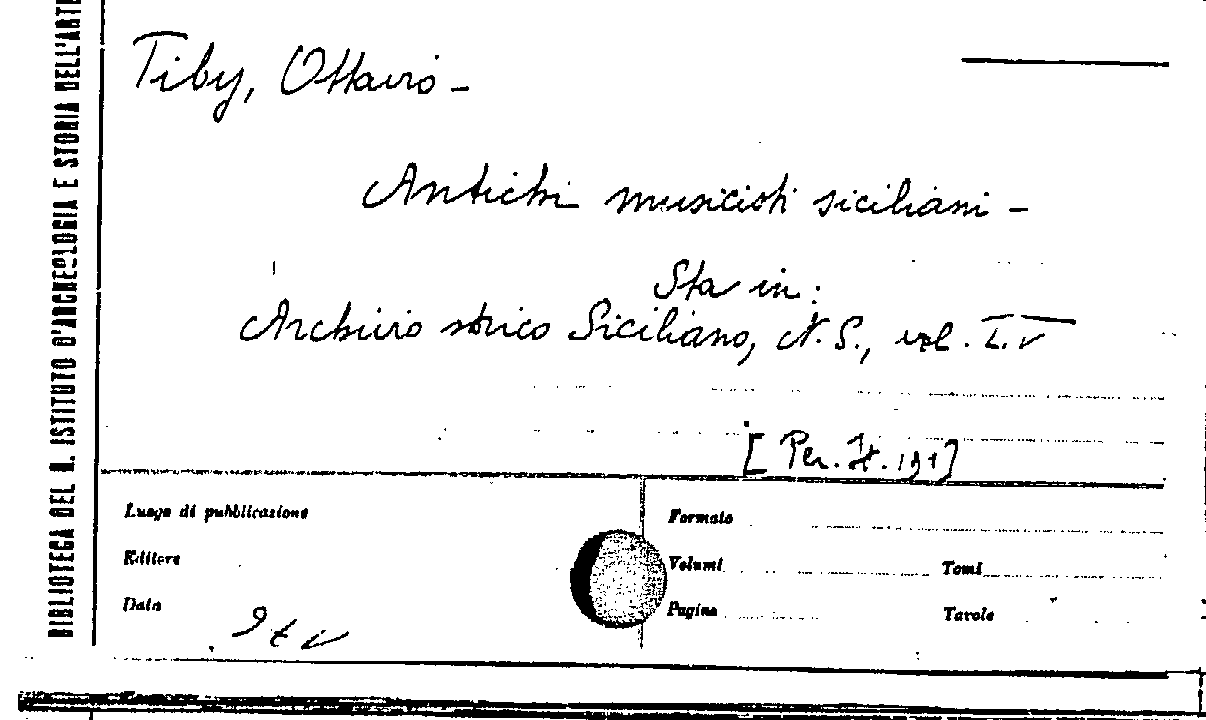 BIBLIOTECA DEL R. ISTITUTO D'ARCHEOLOGIA E STORIA DELL'ARTE
Tiby, Ottavio -
Antichi musicisti siciliani -
Sta in:
Archivio storico Siciliano, N. S., vol. LIV
[Per. It. 191]
Luogo di pubblicazione
Formato
Editore
Volumi
Tomi
Data
Pagine
Tavole